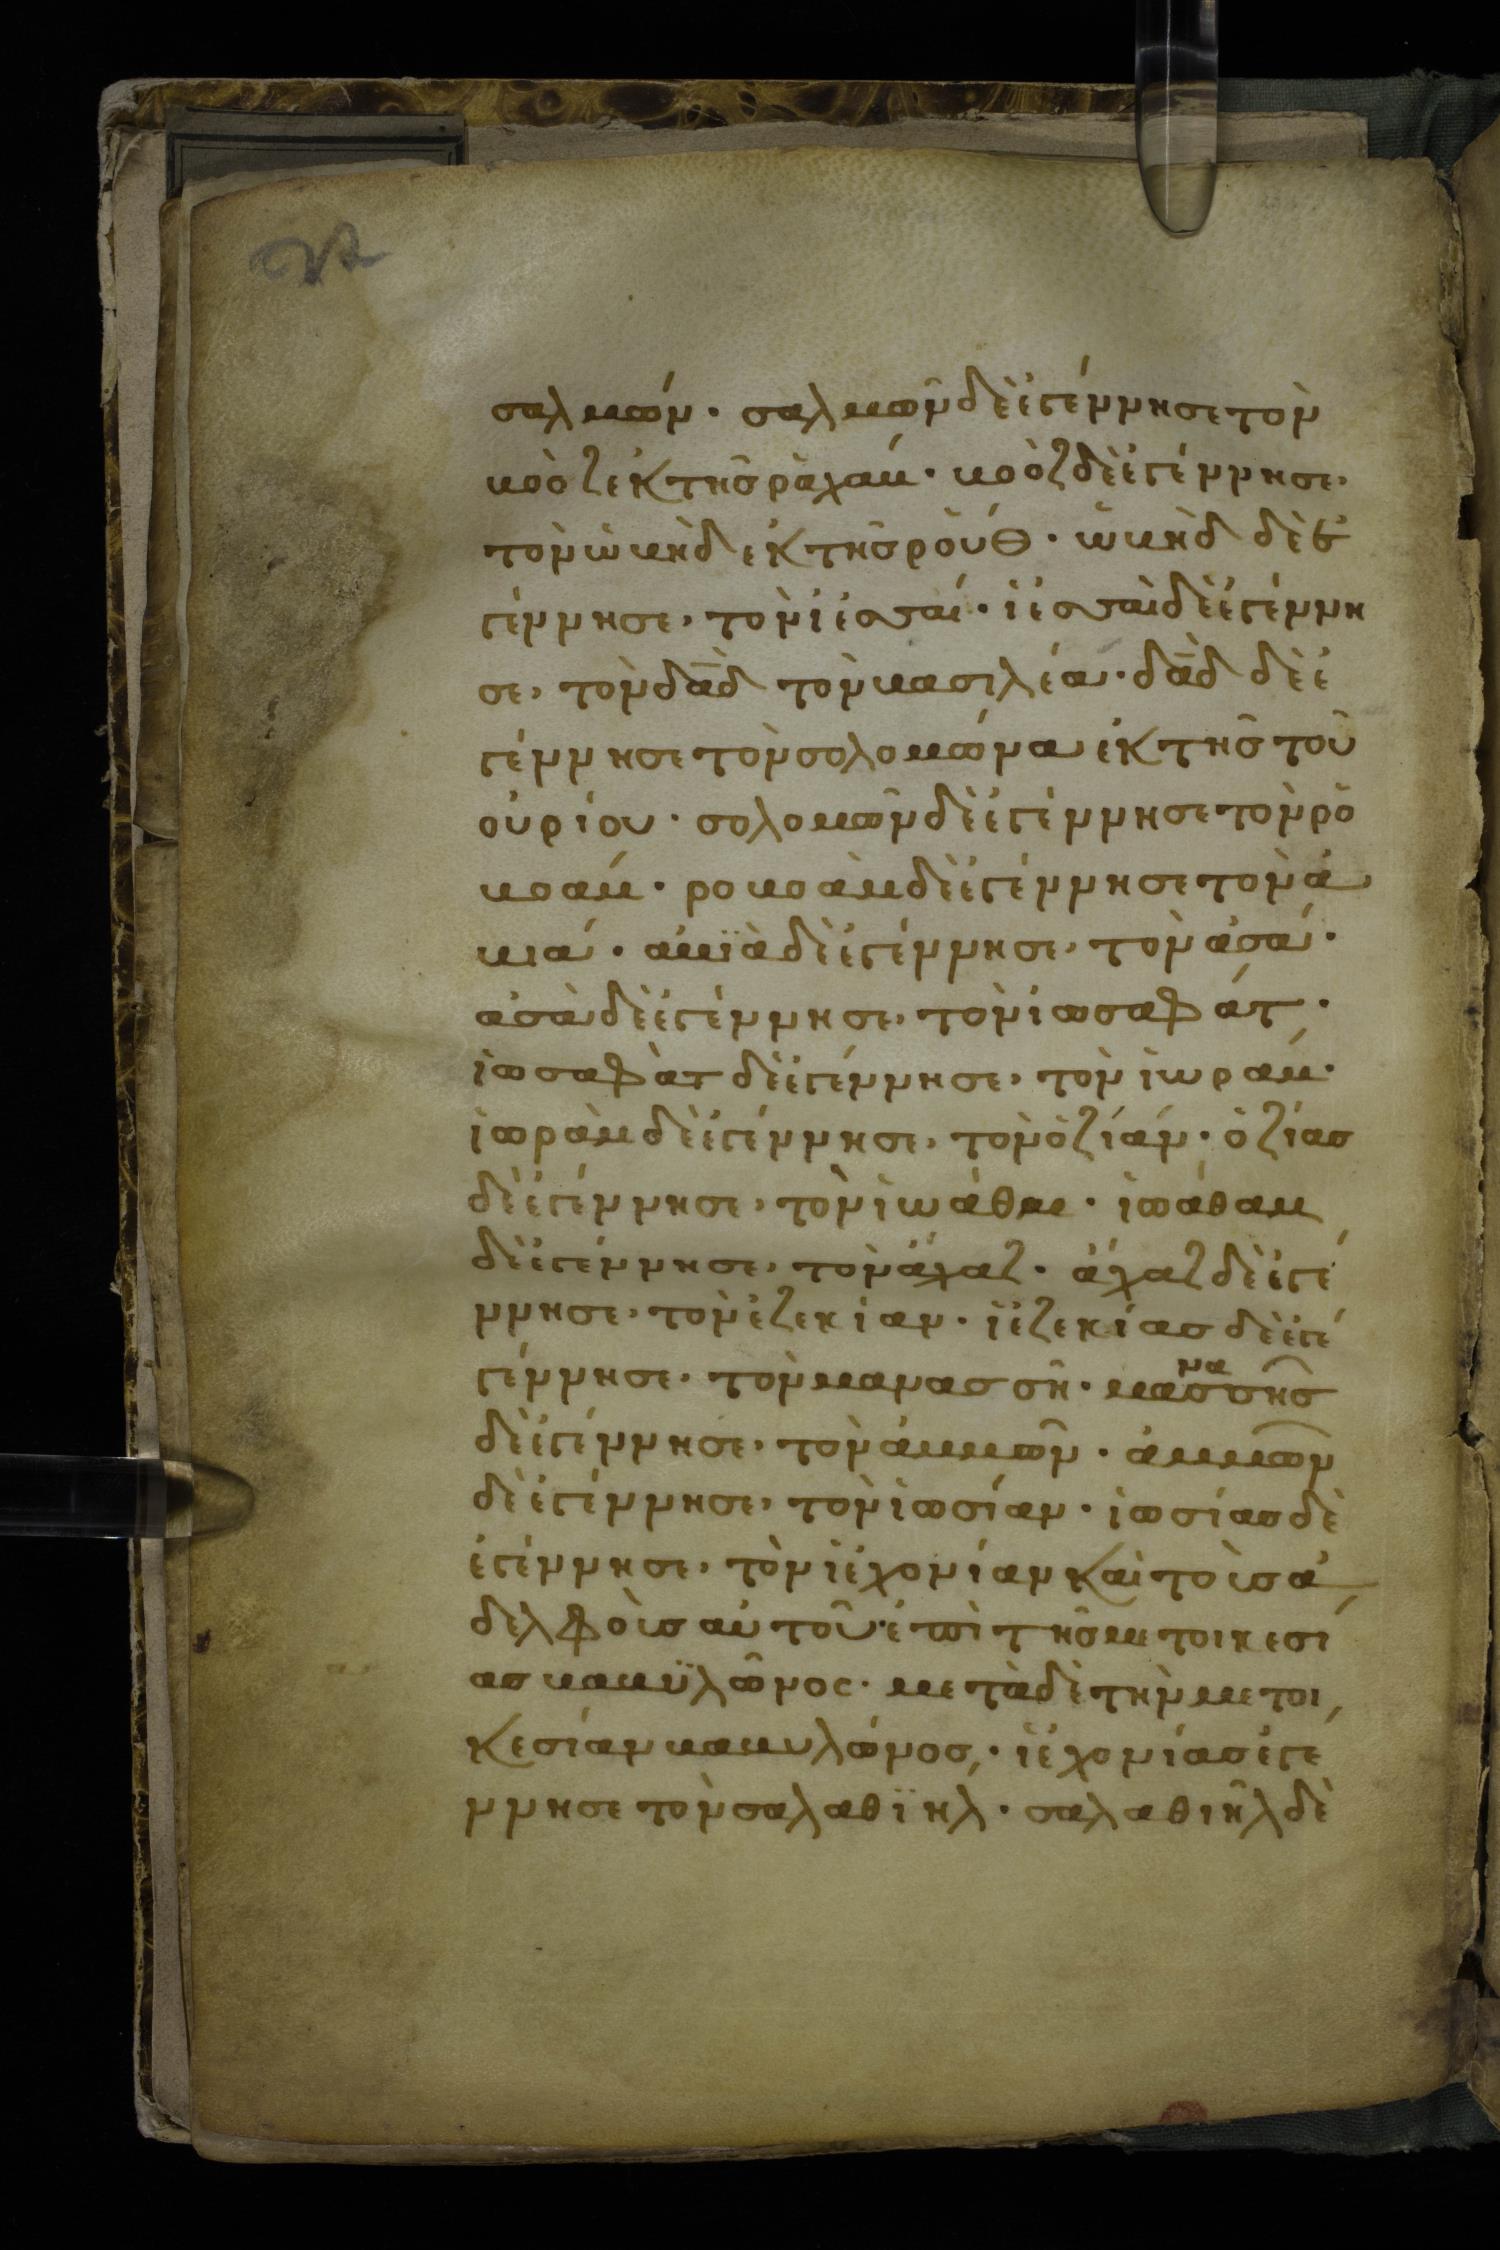 σαλμών · σαλμῶν δὲ ἐγέννησε τὸν
βοὸζ ἐκ τῆς ῥαχάβ · βοὸζ δὲ ἐγέννησε,
τὸν ὠβὴδ ἐκ τῆς ῥούθ · ὠβὴδ δὲ ἐ
γέννησε, τὸν ἰεσσαί · ἰεσσαὶ δὲ ἐγέννη
σε, τὸν δᾱδ τὸν βασιλέα · δᾱδ δὲ ἐ
γέννησε τὸν σολομώνα ἐκ τῆς τοῦ
οὐρίου · σολομῶν δὲ ἐγέννησε τὸν ῥο
βοάμ · ροβοὰμ δὲ ἐγέννησε τὸν ἀ
βιά · ἀβϊὰ δὲ ἐγέννησε, τὸν ἀσά ·
ἀσὰ δὲ ἐγέννησε, τὸν ἰωσαφάτ ·
ἰωσαφὰτ δὲ ἐγέννησε, τὸν ἰωράμ ·
ἰωρὰμ δὲ ἐγέννησε, τὸν ὀζίαν · ὀζίας
δὲ ἐγέννησε, τὸν ἰωάθαμ · ἰωάθαμ
δὲ ἐγέννησε, τὸν ἄχαζ · ἄχαζ δὲ ἐγέ
ννησε, τὸν ἐζεκίαν · ἰεζεκίας δὲ ἐγέ
γέννησε, τὸν μανασσῆ · μανασσῆς
δὲ ἐγέννησε, τὸν ἀμμῶν · ἀμμῶν
δὲ ἐγέννησε, τὸν ἰωσίαν · ἰωσίας δὲ
ἐγέννησε, τὸν ἰεχονίαν καὶ τοὺς ἀ
δελφοὺς αὐτοῦ · ἐπὶ τῆς μετοικεσί
ας βαβϋλῶνος · μετὰ δὲ τὴν μετοι
κεσίαν βαβυλώνος, · ἰεχονίας ἐγέ
ννησε τὸν σαλαθϊήλ · σαλαθιῆλ δὲ